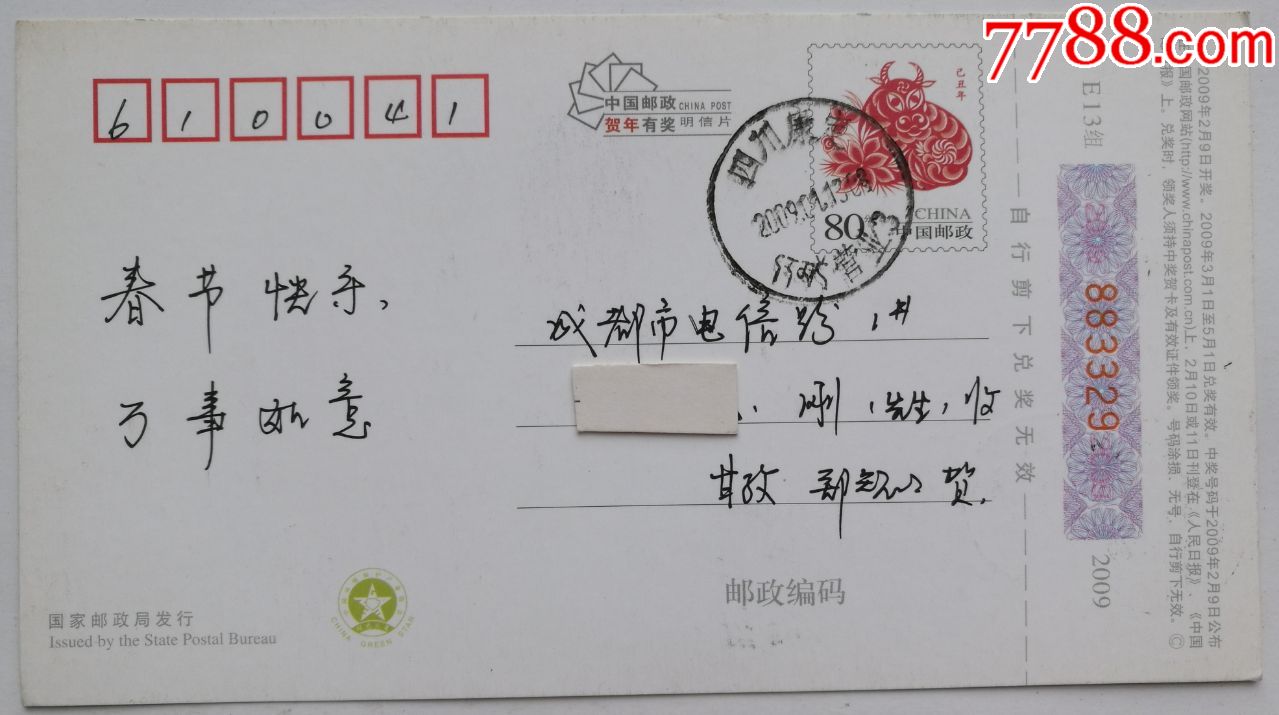 7788.com
610041
中国邮政 CHINA POST
贺年有奖 明信片
己丑年
80分
CHINA
中国邮政
四川康定
2009.01.13
营业
春节快乐,
万事如意
成都市电信路
先生收
甘孜
贺
邮政编码
国家邮政局发行
Issued by the State Postal Bureau
CHINA GREEN STAR
自行剪下兑奖无效
E13组
883329
2009
2009年2月9日开奖。2009年3月1日至5月1日兑奖有效。中奖号码于2009年2月9日公布
国邮政网站(http://www.chinapost.com.cn)上,2月10日或11日刊登在《人民日报》、《中国
报》上。兑奖时,领奖人须持中奖贺卡及有效证件领奖。号码涂损、无号,自行剪下无效。©